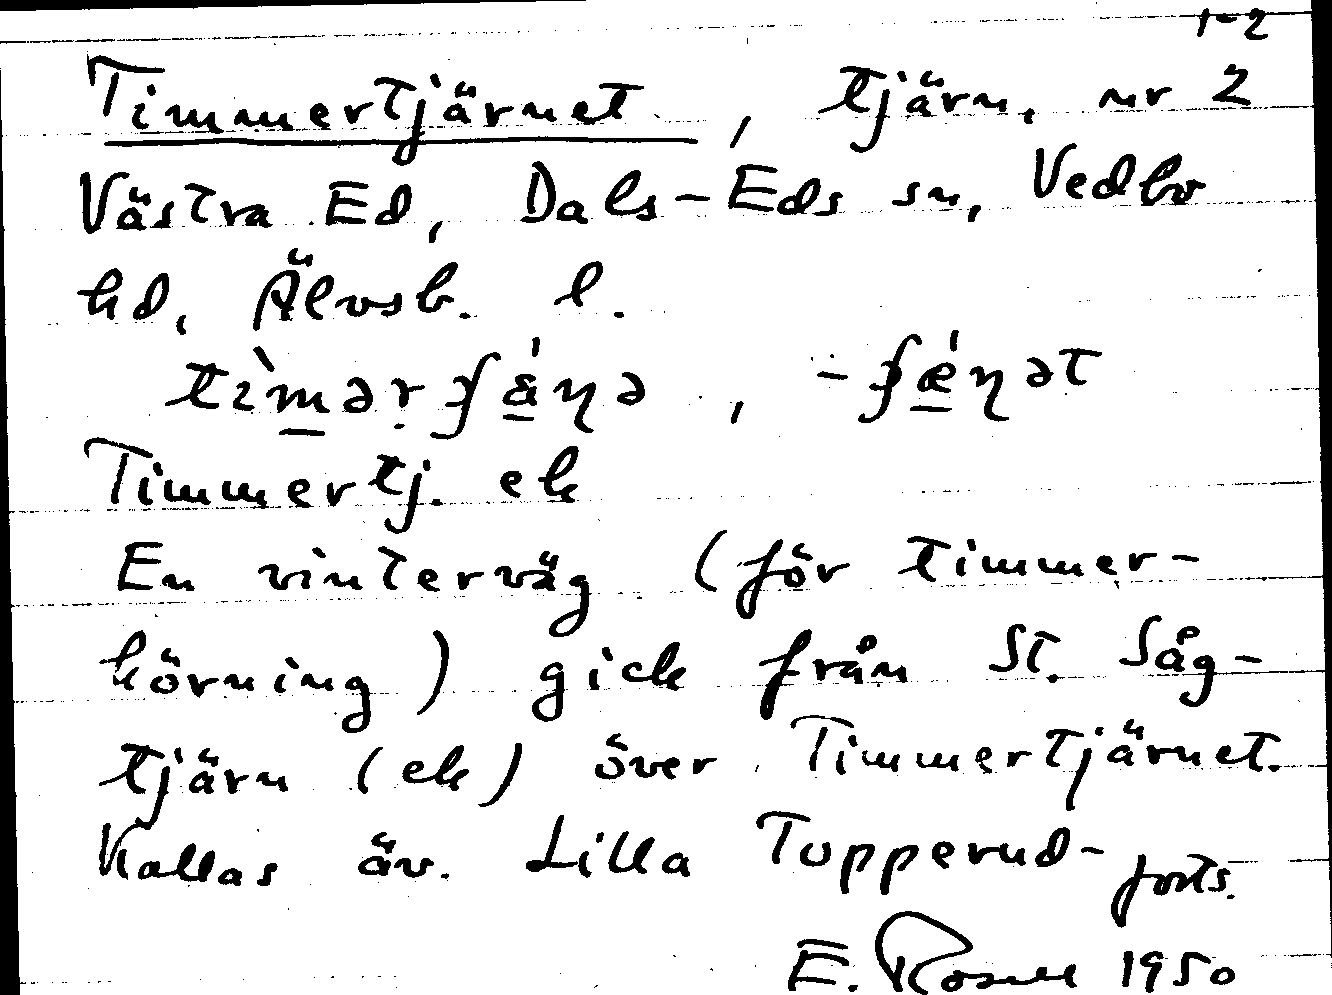 1-2
Timmertjärnet, tjärn, nr 2
Västra Ed, Dals-Eds sn, Vedbo
hd, Älvsb. l.
Timmertj. ek
En vinterväg (för timmer-
körning) gick från St. Såg-
tjärn (ek) över Timmertjärnet.
Kallas äv. Lilla Topperud- forts.
E. 1950